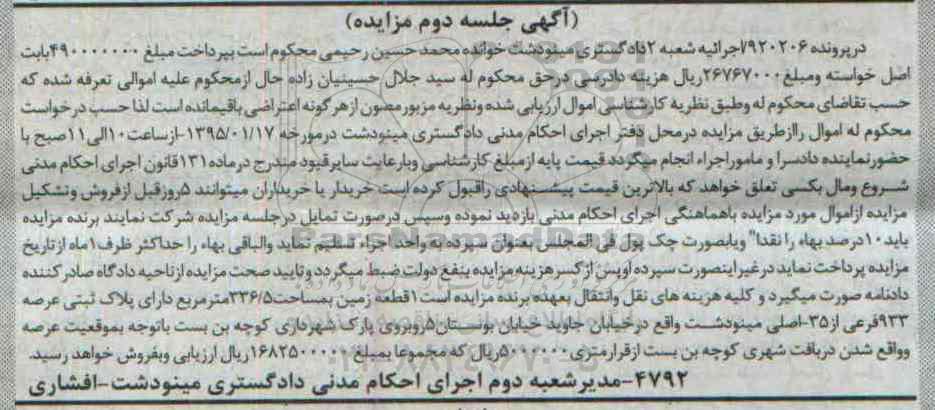 (آگهی جلسه دوم مزایده)
درپرونده ۷۹۲۰۲۰۶اجرائیه شعبه ۲دادگستری مینودشت خوانده محمدحسین رحیمی محکوم است بپرداخت مبلغ ۴۹۰۰۰۰۰۰۰بابت
اصل خواسته ومبلغ۲۶۷۶۷۰۰۰ریال هزینه دادرسی درحق محکوم له سید جلال حسینیان زاده حال ازمحکوم علیه اموالی تعرفه شده که
حسب تقاضای محکوم له وطبق نظریه کارشناسی اموال ارزیابی شده ونظریه مزبورمصون ازهرگونه اعتراضی باقیمانده است لذا حسب درخواست
محکوم له اموال راازطریق مزایده درمحل دفتر اجرای احکام مدنی دادگستری مینودشت درمورخه ۱۳۹۵/۰۱/۱۷-ازساعت۱۰الی۱۱صبح با
حضورنماینده دادسرا و ماموراجراء انجام میگردد قیمت پایه ازمبلغ کارشناسی وبارعایت سایرقیود مندرج درماده۱۳۱قانون اجرای احکام مدنی
شروع ومال بکسی تعلق خواهد که بالاترین قیمت پیشنهادی راقبول کرده است خریدار یا خریداران میتوانند ۵روزقبل ازفروش وتشکیل
مزایده ازاموال مورد مزایده باهماهنگی اجرای احکام مدنی بازدید نموده وسپس درصورت تمایل درجلسه مزایده شرکت نمایند برنده مزایده
باید۱۰درصد بهاء را نقدا" ویابصورت چک پول فی المجلس بعنوان سپرده به واحد اجراء تسلیم نماید والباقی بهاء را حداکثر ظرف۱ماه ازتاریخ
مزایده پرداخت نماید درغیراینصورت سپرده اوپس ازکسرهزینه مزایده بنفع دولت ضبط میگردد وتایید صحت مزایده ازناحیه دادگاه صادرکننده
دادنامه صورت میگیرد و کلیه هزینه های نقل وانتقال بعهده برنده مزایده است۱قطعه زمین بمساحت۳۳۶/۵مترمربع دارای پلاک ثبتی عرصه
۹۳۳فرعی از۳۵-اصلی مینودشت واقع درخیابان جاوید خیابان بوستان۵روبروی پارک شهرداری کوچه بن بست باتوجه بموقعیت عرصه
وواقع شدن دربافت شهری کوچه بن بست ازقرارمتری۵۰۰۰۰۰۰ریال که مجموعا بمبلغ۱۶۸۲۵۰۰۰۰۰ریال ارزیابی وبفروش خواهد رسید.
۴۷۹۲-مدیرشعبه دوم اجرای احکام مدنی دادگستری مینودشت-افشاری
ParsNamadData